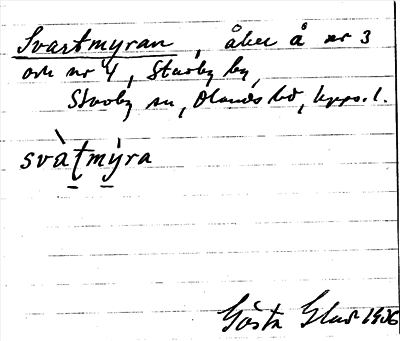 Svartmyran, åker å nr 3
och nr 4, Stavby by,
Stavby sn, Olands hd, Upps. l.
svàtmýra
Gösta 1906